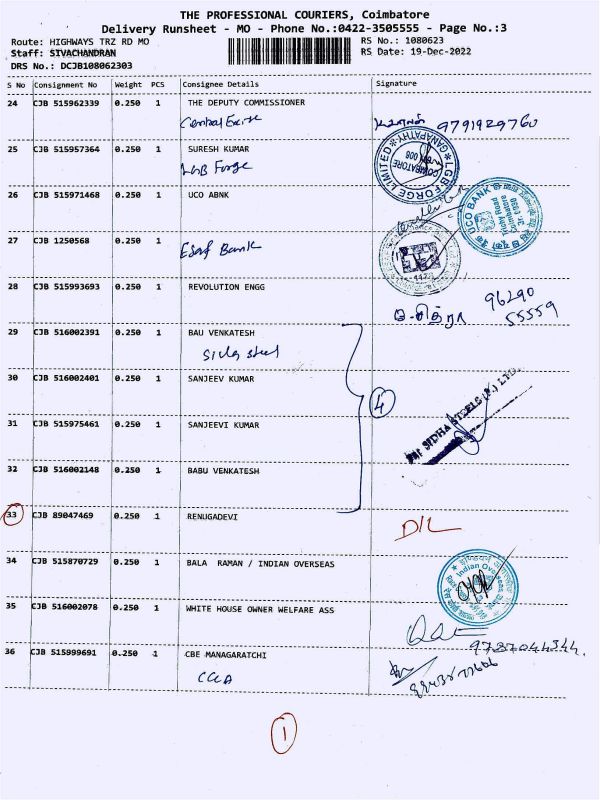 THE PROFESSIONAL COURIERS, Coimbatore
Delivery Runsheet - MO - Phone No.:0422-3505555 - Page No.:3
Route: HIGHWAYS TRZ RD MO
RS No.: 1080623
Staff: SIVACHANDRAN
RS Date: 19-Dec-2022
DRS No.: DCJB108062303
S No Consignment No Weight PCS Consignee Details Signature
24 CJB 515962339 0.250 1 THE DEPUTY COMMISSIONER
Central Excise
9791929760
25 CJB 515957364 0.250 1 SURESH KUMAR
LGB Forge
LGB FORGE LIMITED GANAPATHY COIMBATORE
26 CJB 515971468 0.250 1 UCO ABNK
UCO BANK
27 CJB 1250568 0.250 1
Esaf Bank
28 CJB 515993693 0.250 1 REVOLUTION ENGG
சித்ரா 96290
55559
29 CJB 516002391 0.250 1 BAU VENKATESH
steel
30 CJB 516002401 0.250 1 SANJEEV KUMAR
4
31 CJB 515975461 0.250 1 SANJEEVI KUMAR
SIDHA STEELS (P.) LTD.
32 CJB 516002148 0.250 1 BABU VENKATESH
33 CJB 89047469 0.250 1 RENUGADEVI
D/L
34 CJB 515870729 0.250 1 BALA RAMAN / INDIAN OVERSEAS
Indian Overseas Bank
35 CJB 516002078 0.250 1 WHITE HOUSE OWNER WELFARE ASS
9787044344.
36 CJB 515999691 0.250 1 CBE MANAGARATCHI
CCLA
1